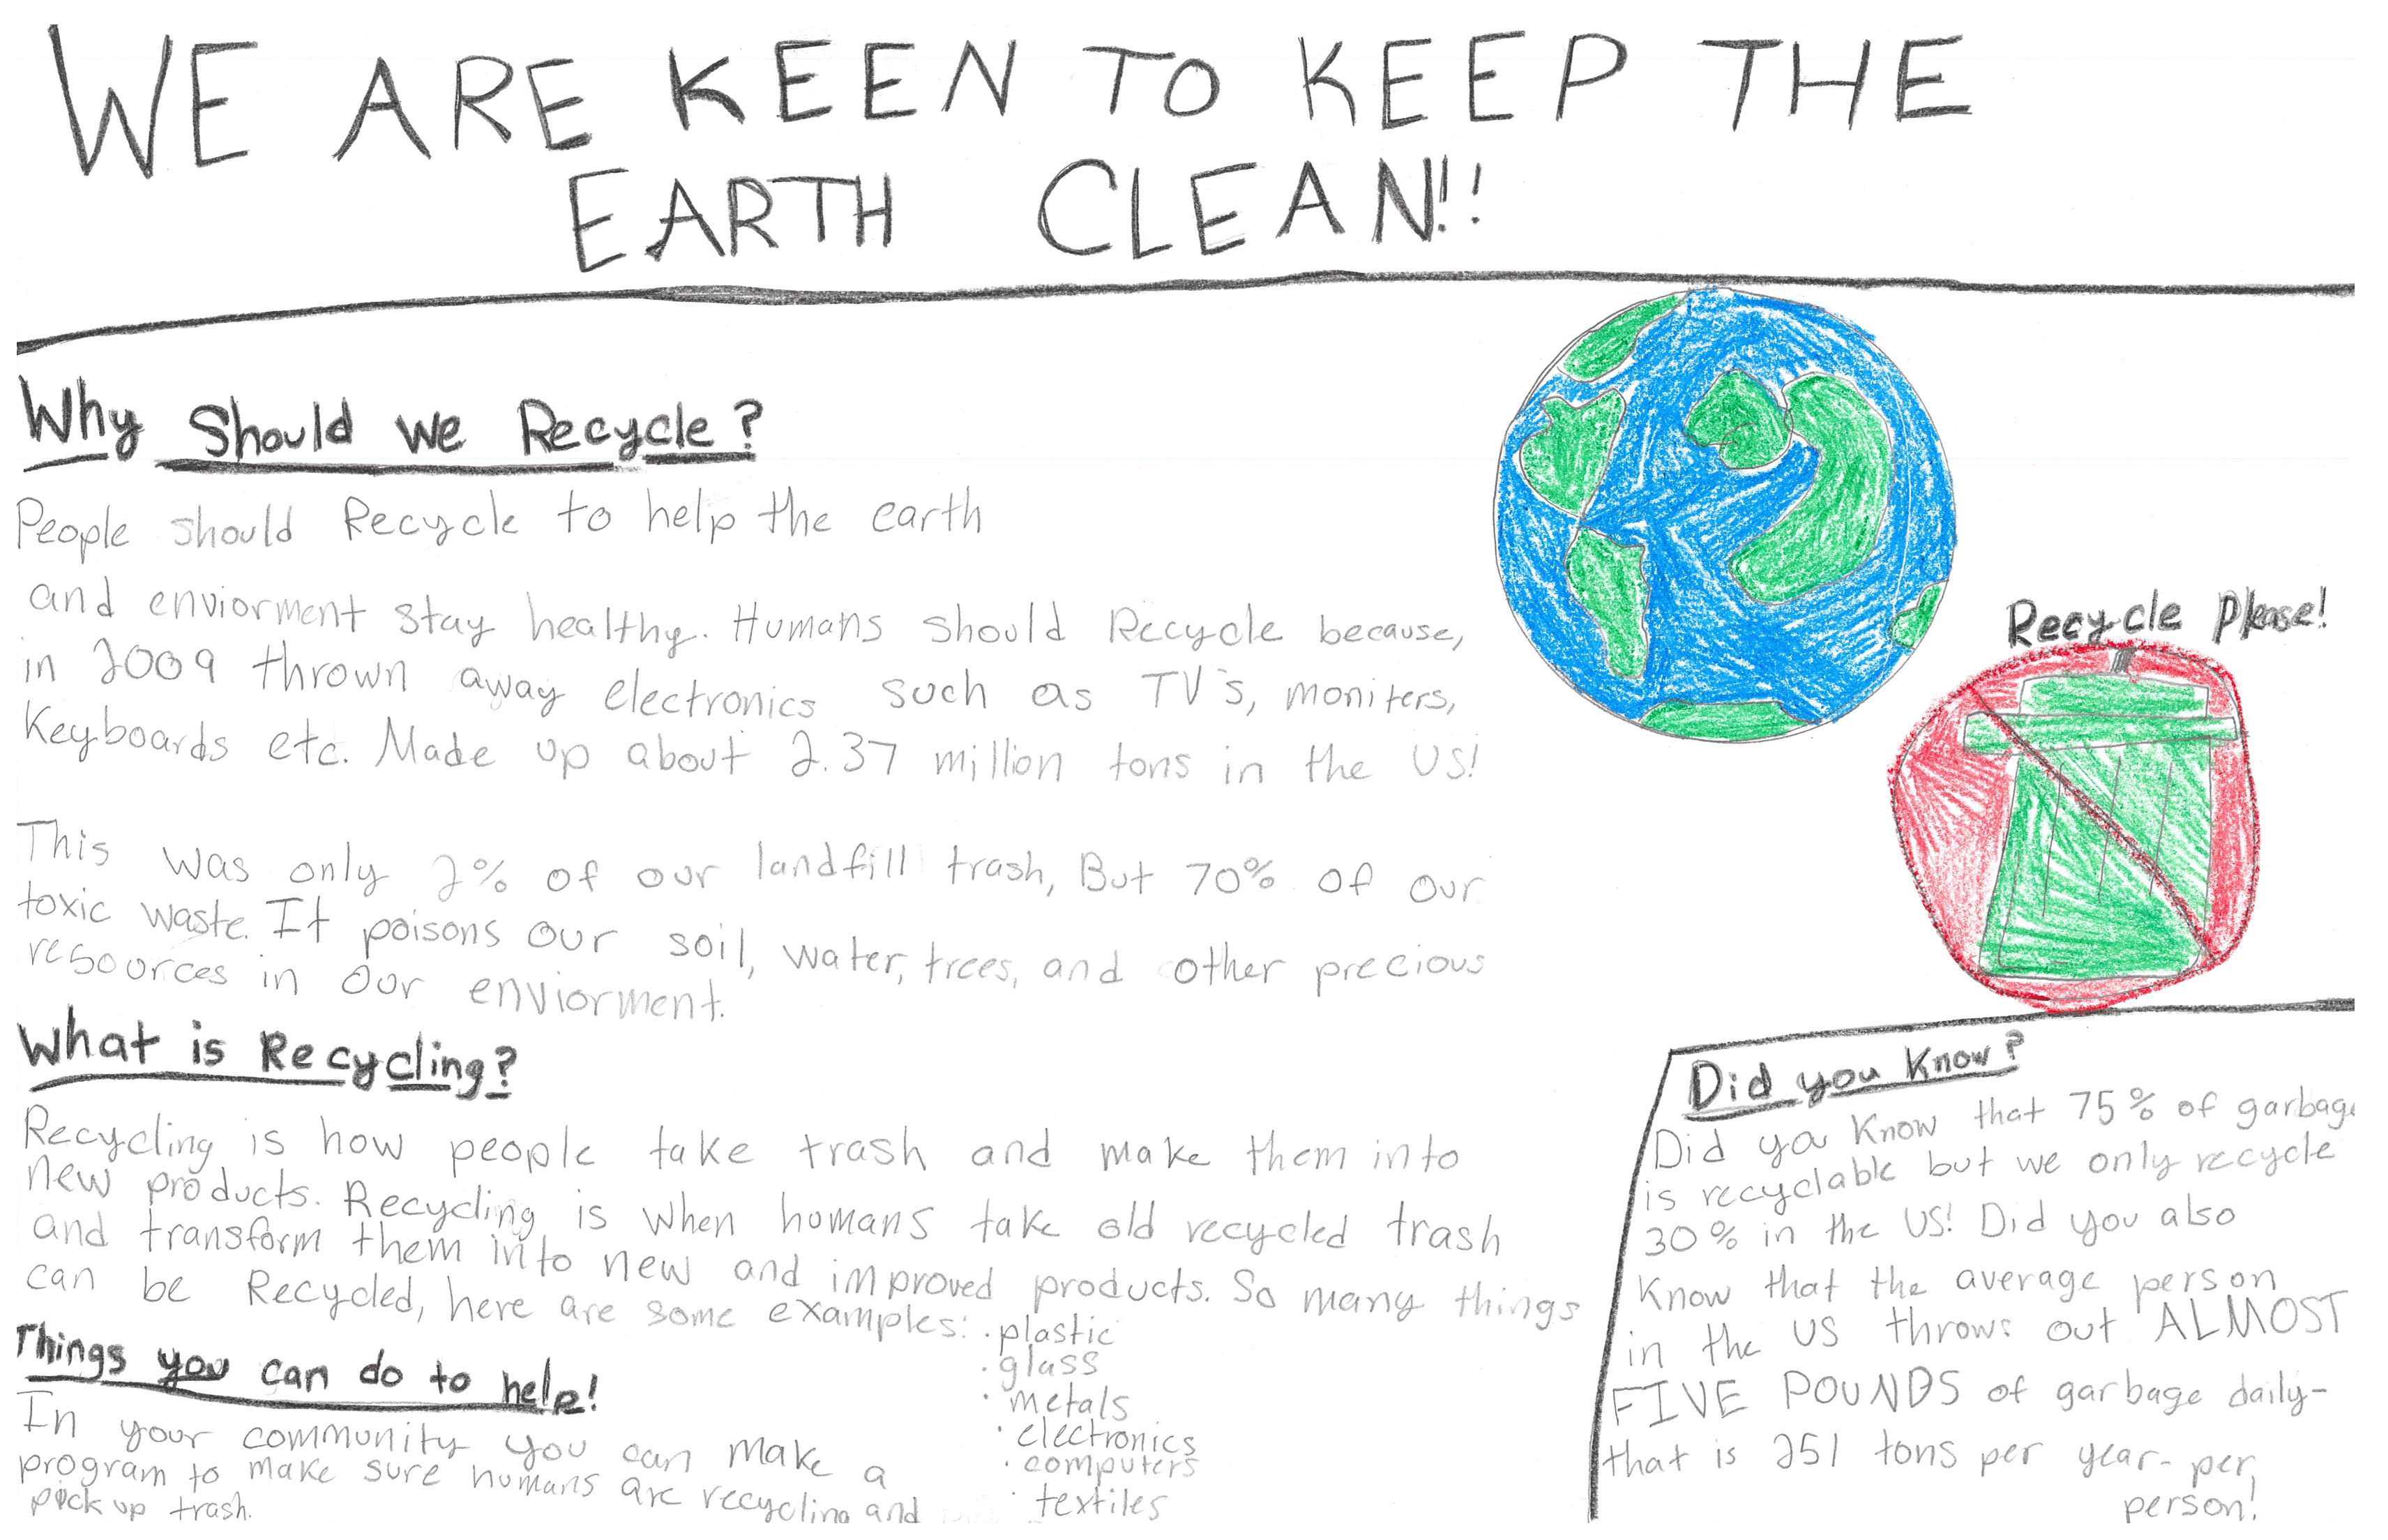 WE ARE KEEN TO KEEP THE
EARTH CLEAN!!
Why Should we Recycle?
People should Recycle to help the earth
and enviorment stay healthy. Humans should Recycle because,
in 2009 thrown away electronics such as TV's, moniters,
Keyboards etc. Made up about 2.37 million tons in the US!
This was only 2% of our landfill trash, But 70% of our
toxic waste. It poisons our soil, water, trees, and other precious
resources in our enviorment.
What is Recycling?
Recycling is how people take trash and make them into
new products. Recycling is when humans take old recycled trash
and transform them into new and improved products. So many things
can be Recycled, here are some examples:
· plastic
· glass
· metals
· electronics
· computers
· textiles
Things you can do to help!
In your community you can make a
program to make sure humans are recycling and
pick up trash.
Recycle Please!
Did you Know?
Did you Know that 75% of garbage
is recyclable but we only recycle
30% in the US! Did you also
Know that the average person
in the US throws out ALMOST
FIVE POUNDS of garbage daily-
that is 251 tons per year- per
person!